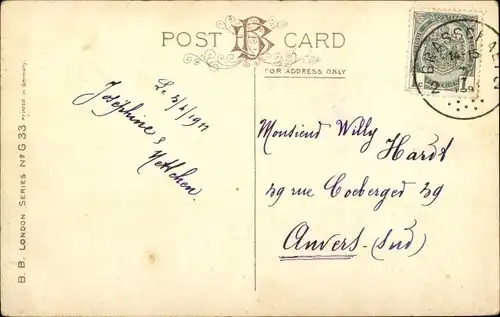 POST CARD
FOR ADDRESS ONLY
BRASSCHAET
14-15
Le 3/1/1911
Joséphine &
Nettchen.
Monsieur Willy
Hardt
39 rue Coeberger 39
Anvers-(Sud)
B. B. LONDON SERIES No G 33 Printed in Germany.